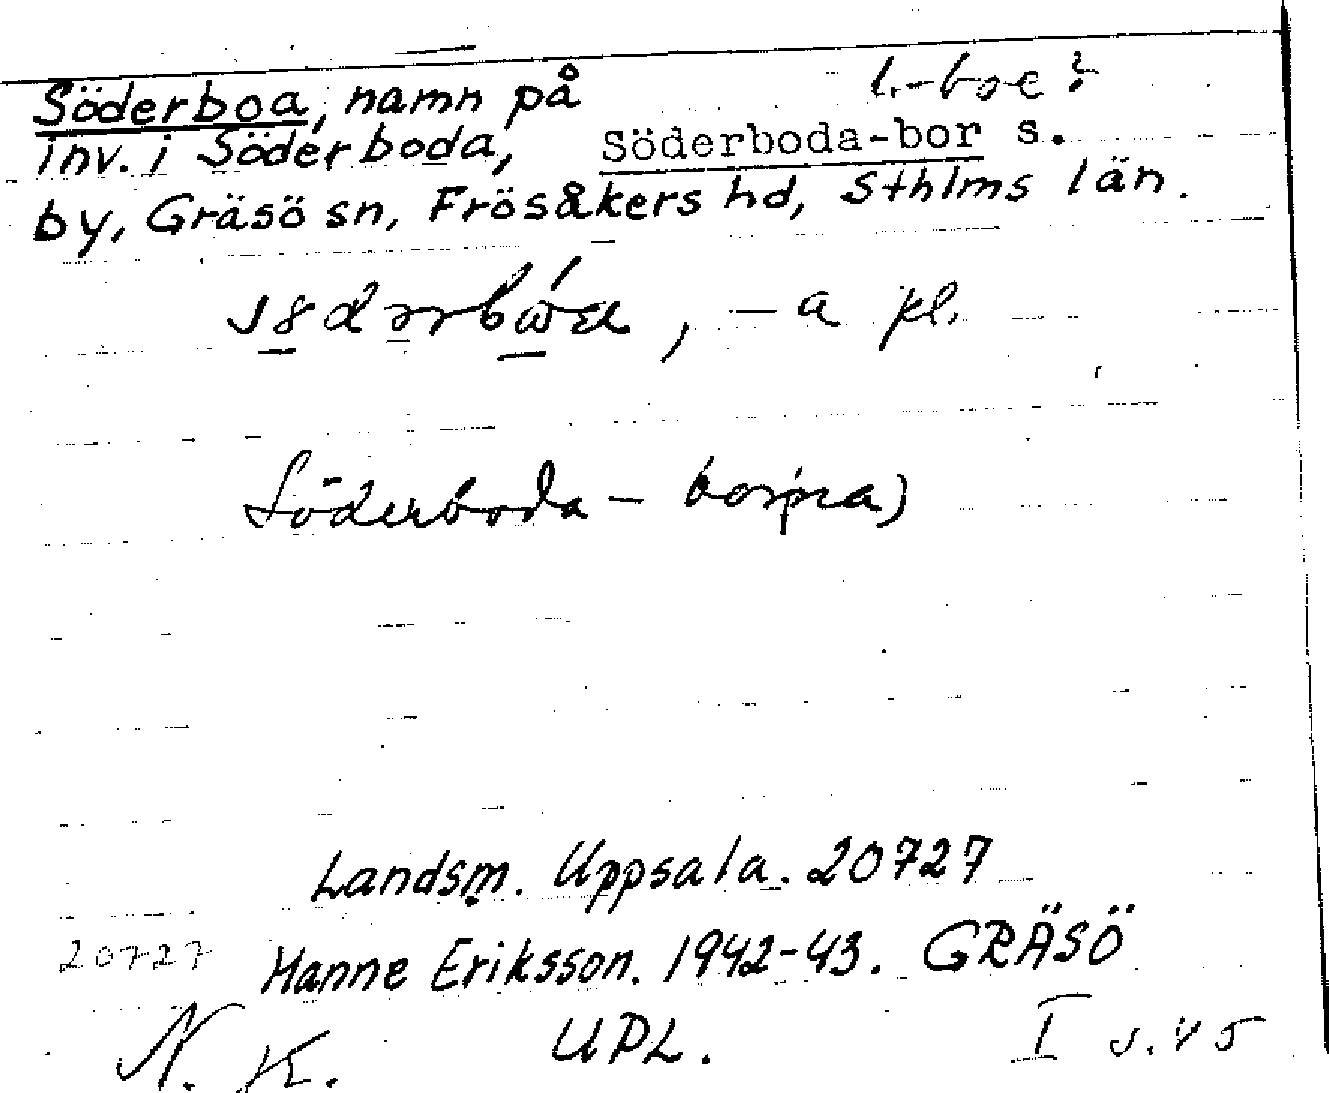 l. -boe?
Söderboa, namn på
inv. i Söderboda, Söderboda-bor s.
by, Gräsö sn, Frösåkers hd, Sthlms län.
, -a pl.
Söderboda-
Landsm. Uppsala. 20727
20727 Hanne Eriksson. 1942-43. GRÄSÖ
N. K. UPL. I s. 45